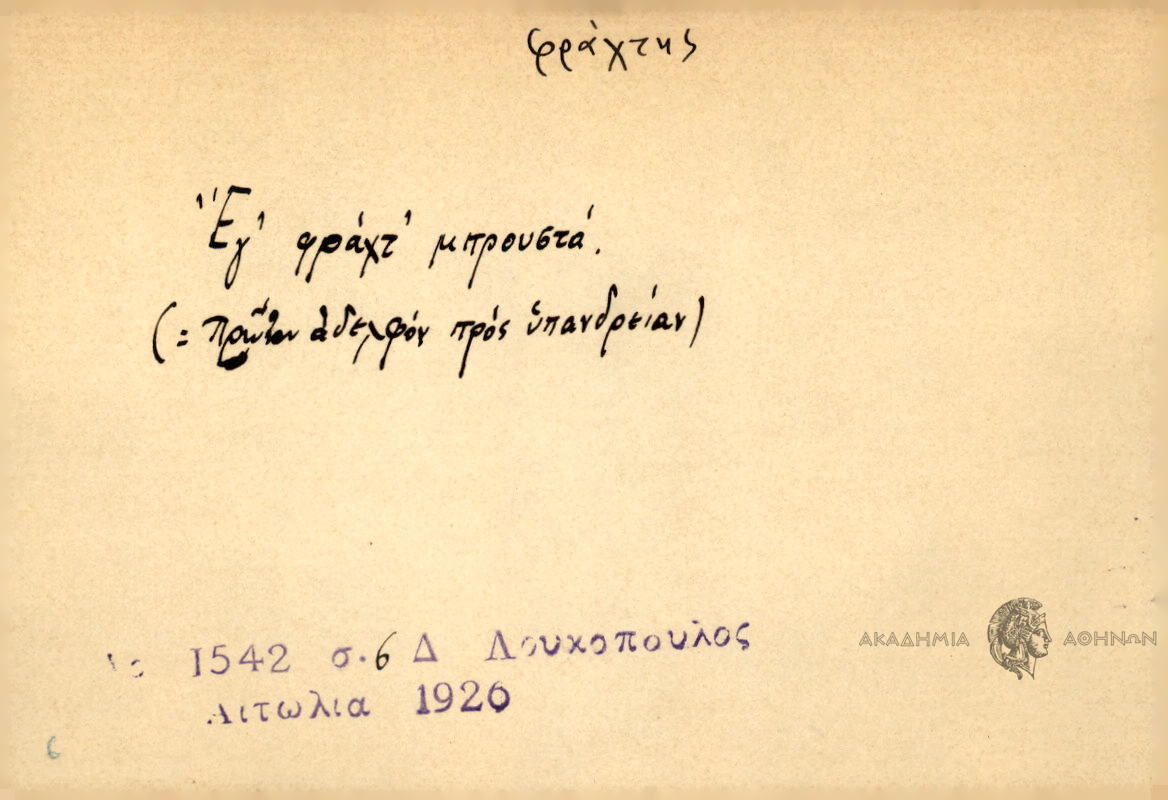 φράχτης
Ἔχ' φράχτ' μπρουστά.
(= πρῶτον ἀδελφόν πρός ὑπανδρείαν)
1542 σ. 6 Δ Λουκοπουλος
Αιτωλια 1926
ΑΚΑΔΗΜΙΑ ΑΘΗΝΩΝ
6